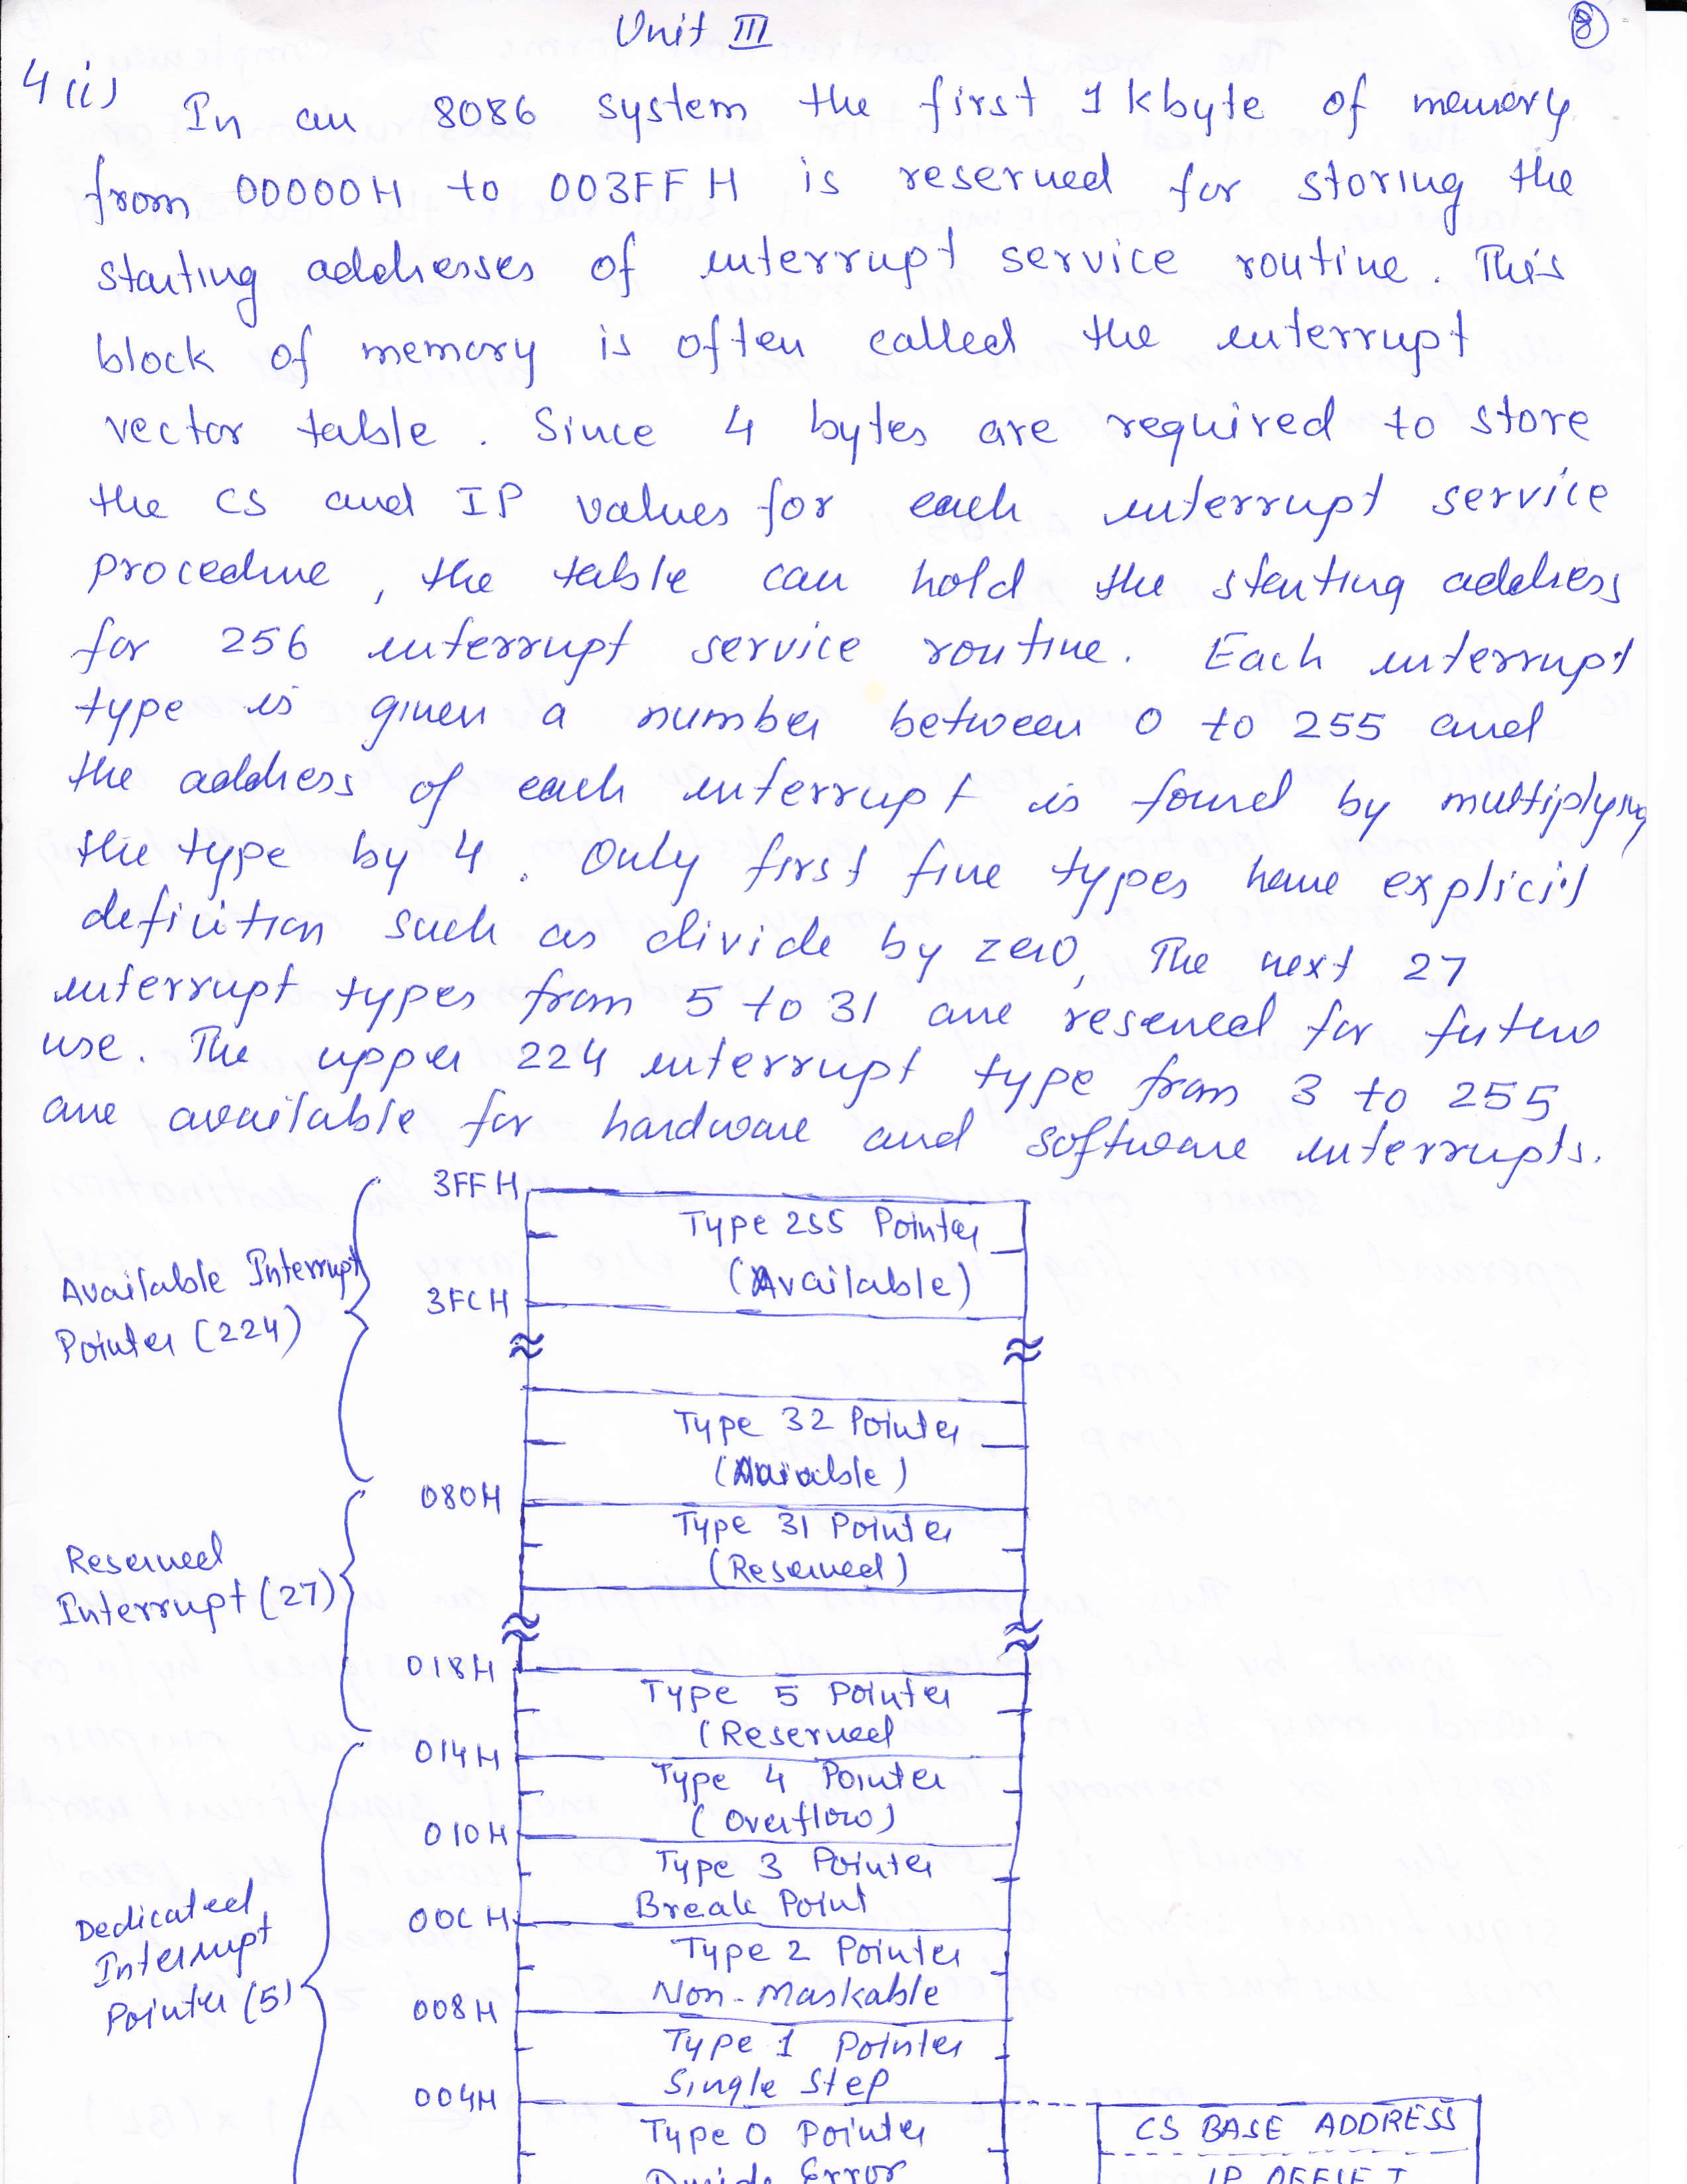 Unit III
8
4(i) In an 8086 system the first 1 kbyte of memory
from 00000H to 003FF H is reserved for storing the
starting addresses of interrupt service routine. This
block of memory is often called the interrupt
vector table. Since 4 bytes are required to store
the CS and IP values for each interrupt service
procedure, the table can hold the starting address
for 256 interrupt service routine. Each interrupt
type is given a number between 0 to 255 and
the address of each interrupt is found by multiplying
the type by 4. Only first five types have explicit
definition such as divide by zero, The next 27
interrupt types from 5 to 31 are reserved for future
use. The upper 224 interrupt type from 3 to 255
are available for hardware and software interrupts.
3FF H
Type 255 Pointer
(Available)
Available Interrupt
Pointer (224)
3FC H
Type 32 Pointer
(Avaiable)
080H
Type 31 Pointer
(Reserved)
Reserved
Interrupt (27)
018H
Type 5 Pointer
(Reserved
014H
Type 4 Pointer
(Overflow)
010H
Type 3 Pointer
Break Point
00C H
Dedicated
Interrupt
Pointer (5)
Type 2 Pointer
Non-Maskable
008H
Type 1 Pointer
Single Step
004H
Type 0 Pointer
Divide Error
CS BASE ADDRESS
IP OFFSET